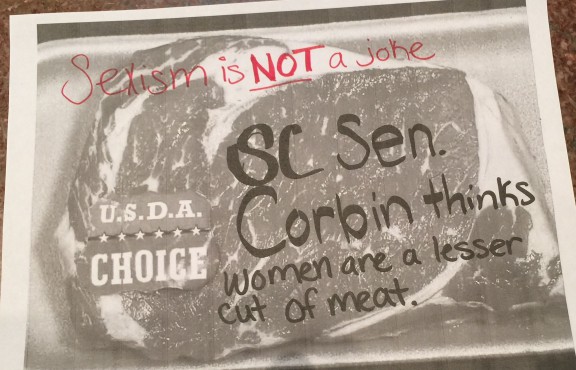 Sexism is NOT a joke
SC Sen.
Corbin thinks
women are a lesser
cut of meat.
U.S.D.A.
CHOICE